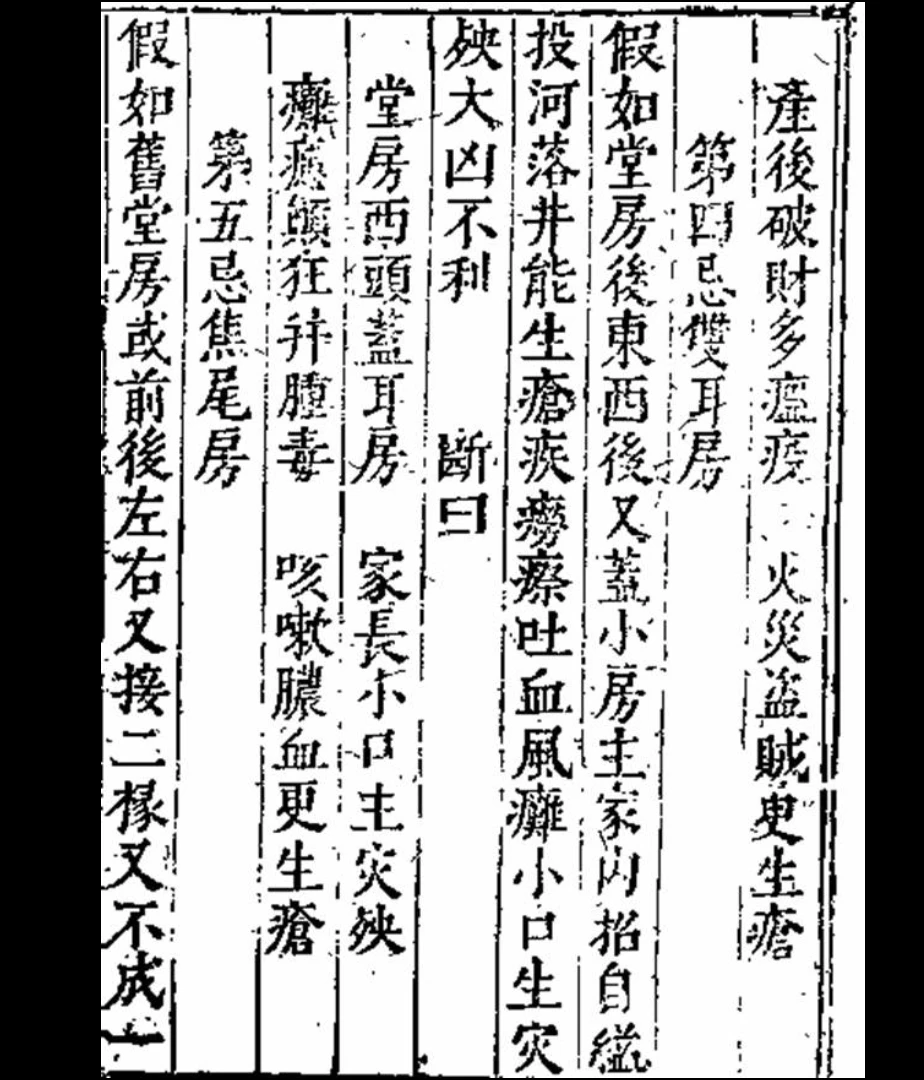 產後破財多瘟疫 火災盜賊更生瘡
第四忌雙耳房
假如堂房後東西後又蓋小房主家內招自縊
投河落井能生瘡疾癆瘵吐血風癱小口生灾
殃大凶不利 斷曰
堂房西頭蓋耳房 家長小口主灾殃
癱瘓顛狂并腫毒 咳嗽膿血更生瘡
第五忌焦尾房
假如舊堂房或前後左右又接二椽又不成一